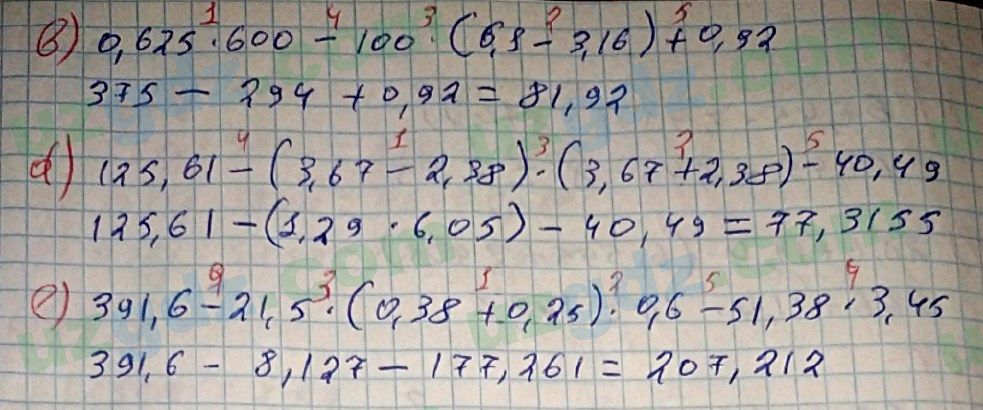 в) 0,625 · 600 - 100 · (6,1 - 3,16) + 0,92
375 - 294 + 0,92 = 81,92
d) 125,61 - (3,67 - 2,38) · (3,67 + 2,38) - 40,49
125,61 - (1,29 · 6,05) - 40,49 = 77,3155
e) 391,6 - 21,5 · (0,38 + 0,25) · 0,6 - 51,38 · 3,45
391,6 - 8,127 - 177,261 = 207,212